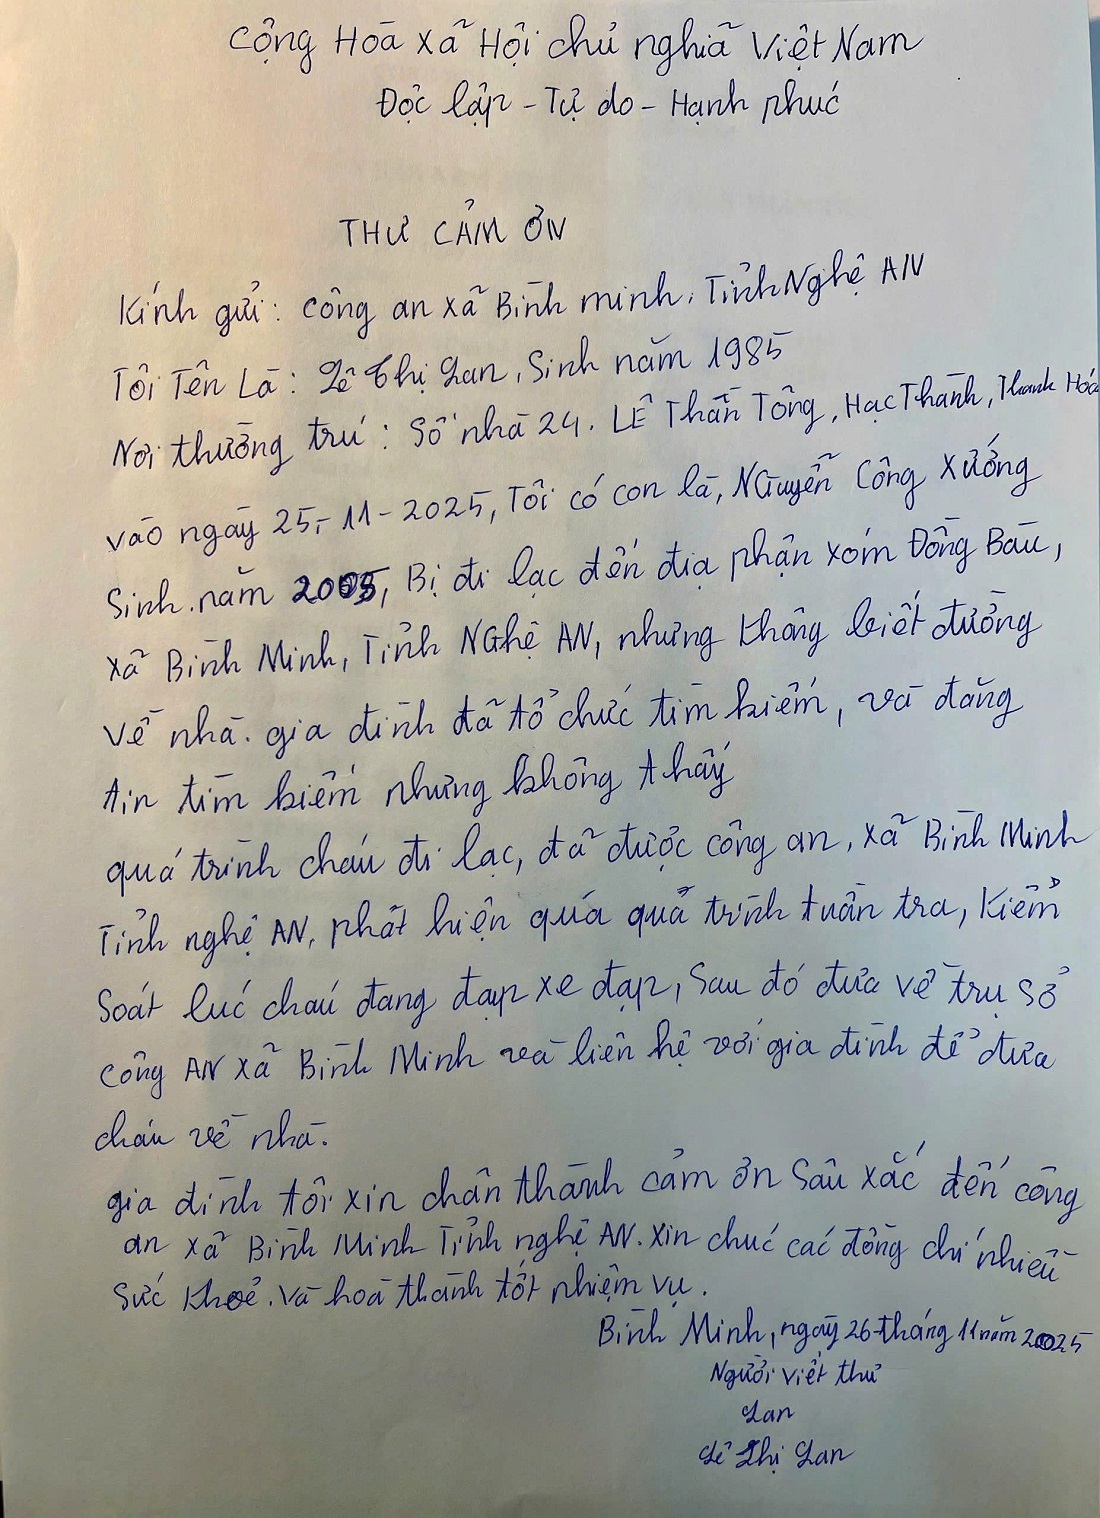 Cộng Hòa Xã Hội chủ nghĩa Việt Nam
Độc lập - Tự do - Hạnh phúc
THƯ CẢM ƠN
Kính gửi: Công an xã Bình minh, Tỉnh Nghệ AN
Tôi Tên Là: Lê Thị Lan, Sinh năm 1985
Nơi thường trú: Số nhà 24. LÊ Thần Tông, Hạc Thành, Thanh Hóa
vào ngày 25-11-2025, Tôi có con là, NGuyễn Công Xướng
Sinh năm 2005, Bị đi lạc đến địa phận xóm Đồng Bàu,
xã Bình Minh, Tỉnh NGhệ AN, nhưng không biết đường
về nhà. gia đình đã tổ chức tìm kiếm, và đăng
tin tìm kiếm nhưng không thấy
quá trình cháu đi lạc, đã được công an, xã Bình Minh
Tỉnh nghệ AN, phát hiện qúa quá trình tuần tra, Kiểm
Soát lúc cháu đang đạp xe đạp, Sau đó đưa về trụ sở
công AN xã Bình Minh và liên hệ với gia đình để đưa
cháu về nhà.
gia đình tôi xin chân thành cảm ơn Sâu xắc đến công
an xã Bình Minh Tỉnh nghệ AN. Xin chúc các đồng chí nhiều
Sức khoẻ. Và hoà thành tốt nhiệm vụ.
Bình Minh, ngày 26 tháng 11 năm 2025
Người viết thư
Lan
Lê Thị Lan